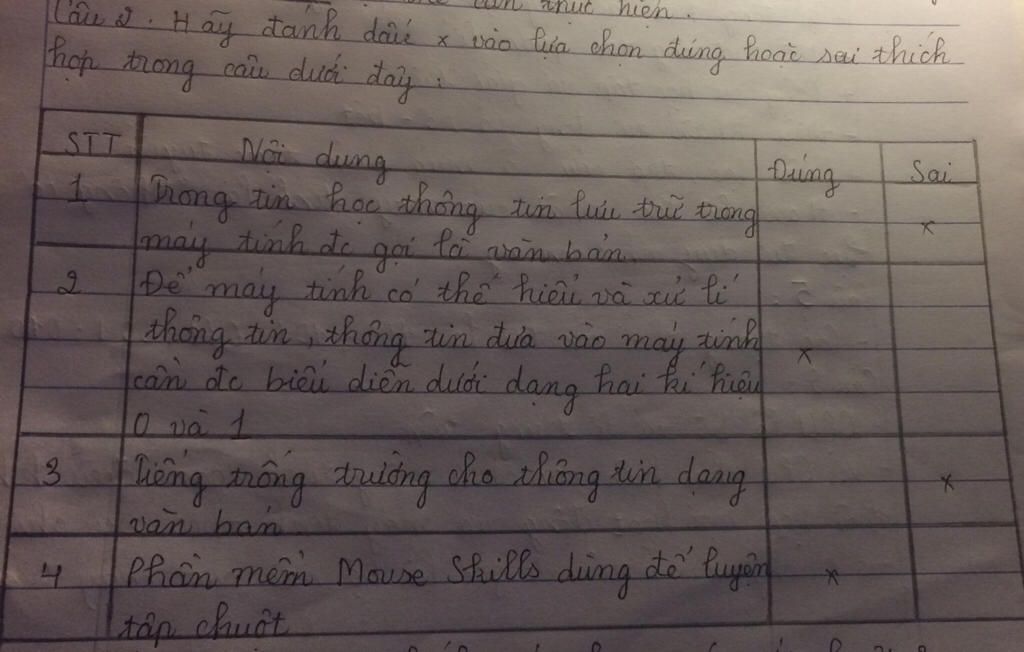 cần thực hiện.
Câu 2. Hãy đánh dấu x vào lựa chọn đúng hoặc sai thích
hợp trong câu dưới đây:
STT Nội dung Đúng Sai
1 Trong tin học thông tin lưu trữ trong
máy tính đc gọi là văn bản. x
2 Để máy tính có thể hiểu và xử lí
thông tin, thông tin đưa vào máy tính x
cần đc biểu diễn dưới dạng hai kí hiệu
0 và 1
3 Tiếng trống trường cho thông tin dạng x
văn bản
4 Phần mềm Mouse Skills dùng để luyện x
tập chuột